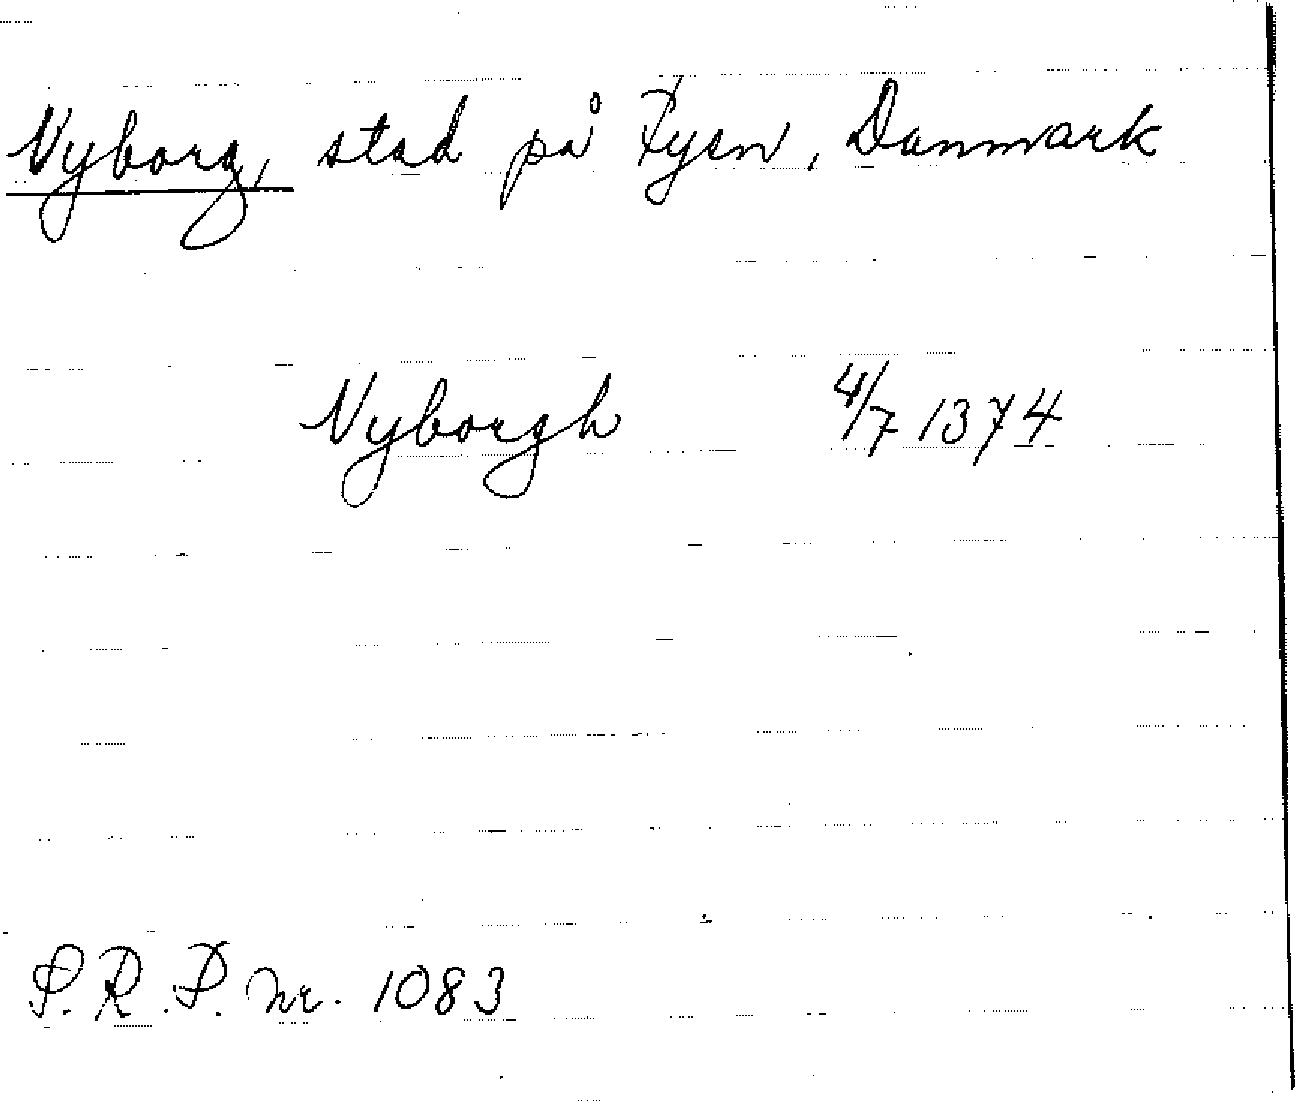 Nyborg, stad på Fyen, Danmark
Nyborgh 4/7 1374
S.R.P. nr. 1083